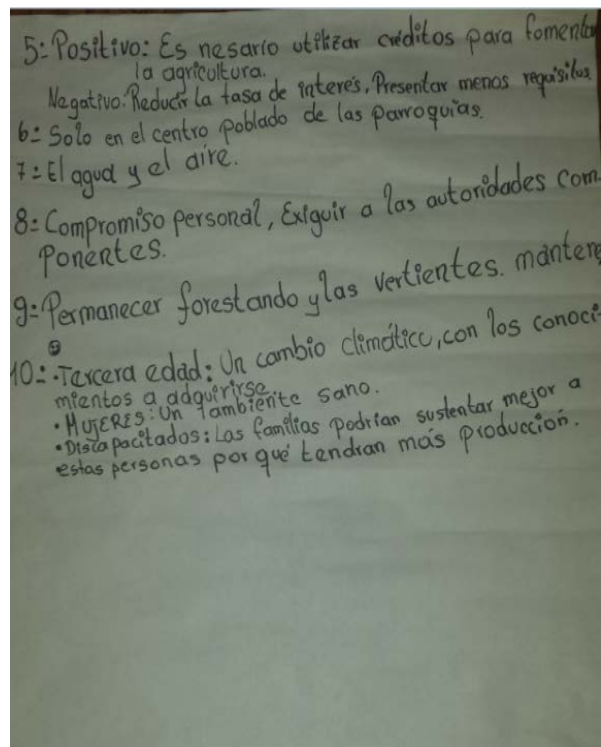 5:- Positivo: Es nesario utilizar créditos para fomentar
la agricultura.
Negativo: Reducir la tasa de interés, Presentar menos requisitos
6:- Solo en el centro poblado de las parroquias.
7:- El agua y el aire.
8:- Compromiso personal, Exiguir a las autoridades com-
ponentes.
9:- Permanecer forestando y las vertientes. mantene
10:- •Tercera edad: Un cambio climático, con los conoci-
mientos a adquirirse.
•MUJERES: Un ambiente sano.
•Discapacitados: Las familias podrian sustentar mejor a
estas personas por qué tendran más producción.